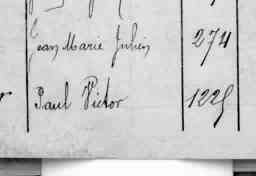 Jean Marie Julien 274
Paul Victor 1225